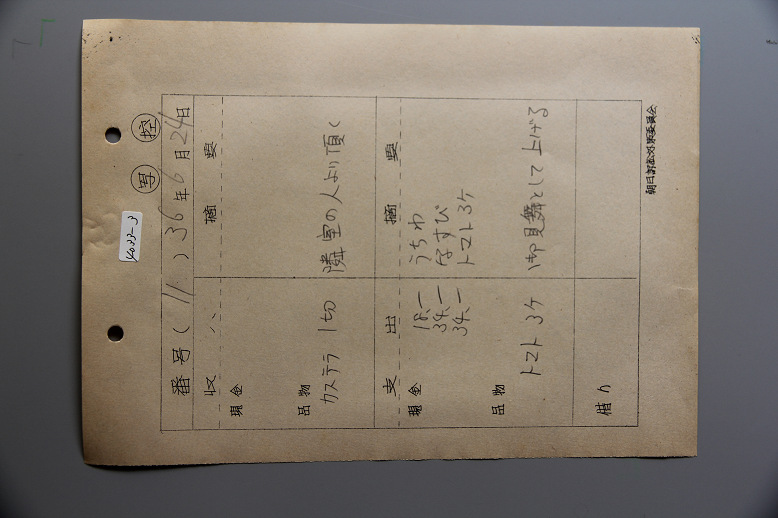 4033-3
写 控
番号(11)36年6月24日
収入 摘要
現金
品物
カステラ 1切 隣室の人より頂く
支出 摘要
現金
18.― うちわ
34.― なすび
34.― トマト3ケ
品物
トマト 3ケ 御見舞として上げる
借り
朝日訴訟対策委員会